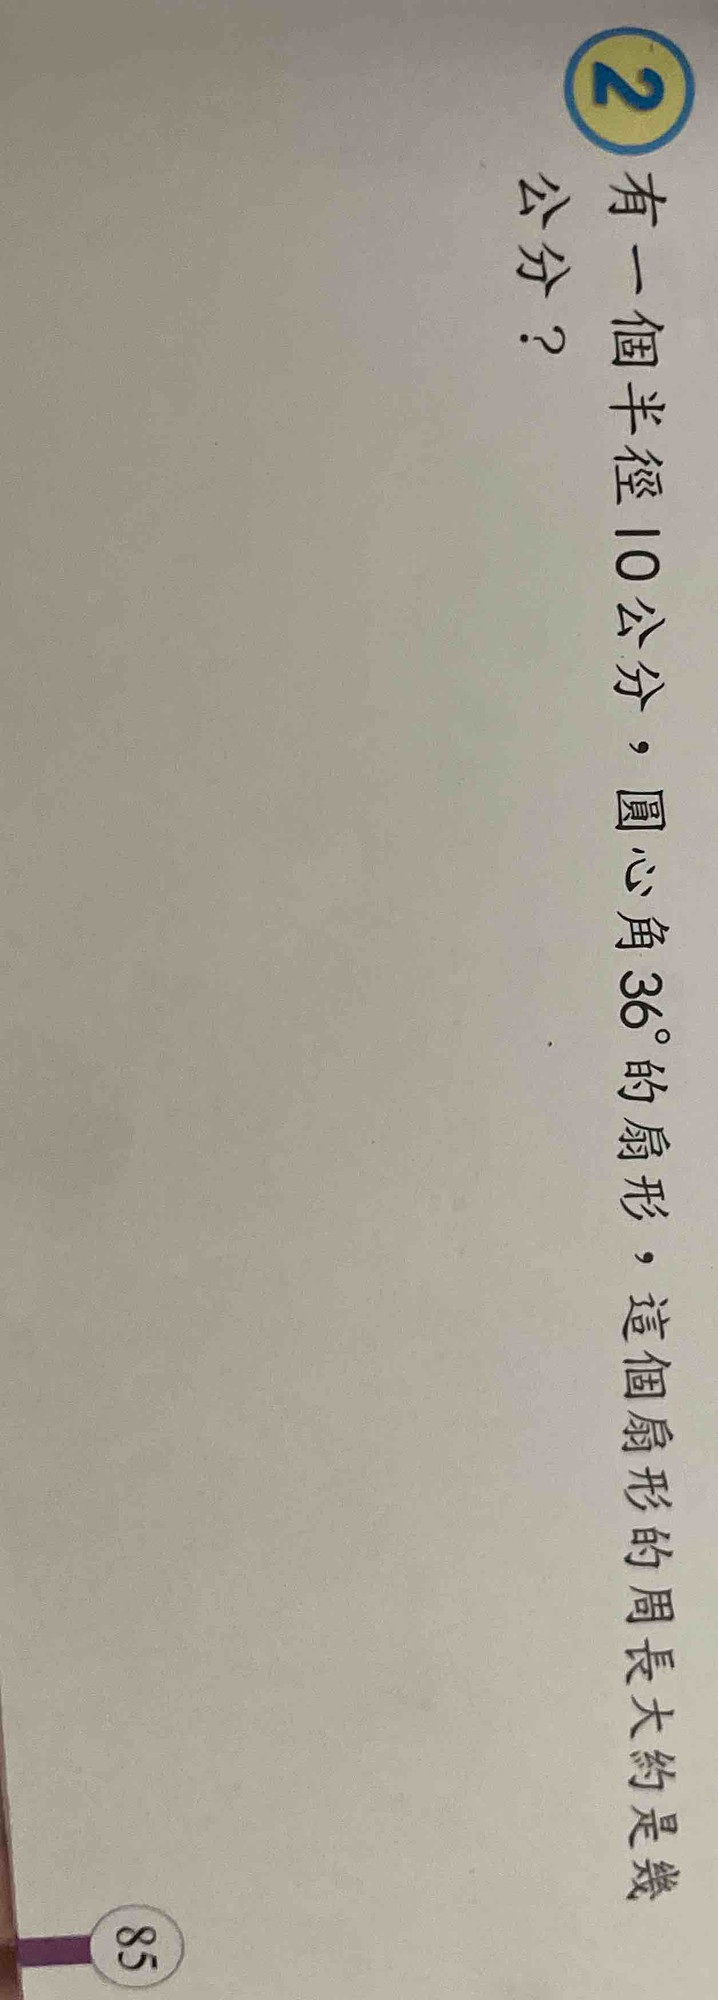 2 有一個半徑10公分，圓心角36°的扇形，這個扇形的周長大約是幾
公分？
85